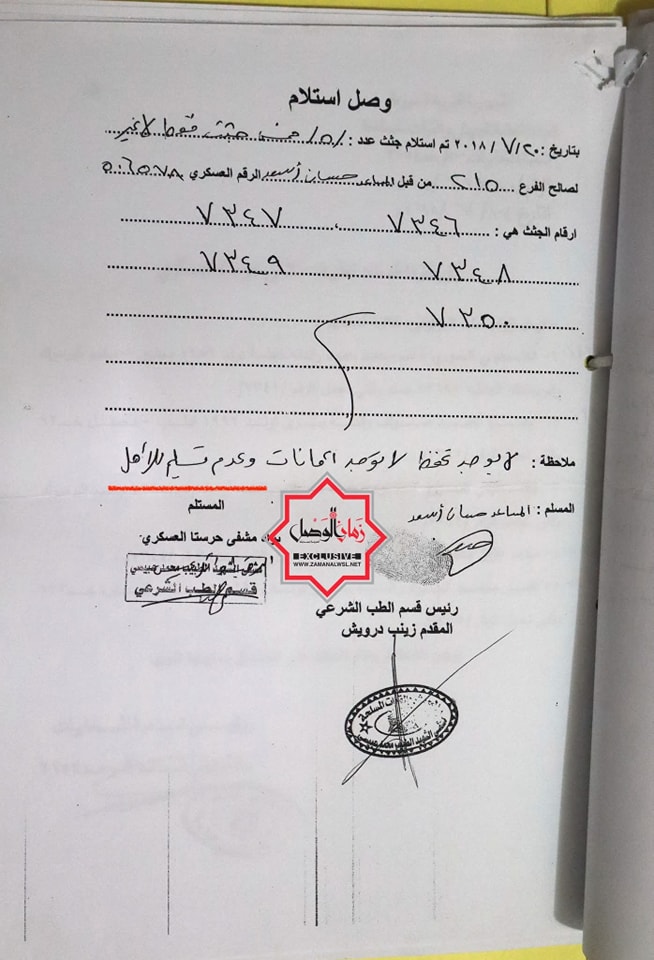 وصل استلام
بتاريخ : ٢٠ / ٧ / ٢٠١٨ تم استلام جثث عدد : /٥/ خمس جثث فقط لاغير
لصالح الفرع ... ٢١٥ ... من قبل المساعد حسان أسعد الرقم العسكري ٥٠٦٥٧٨
ارقام الجثث هي : ٧٣٤٦ ، ٧٣٤٧
٧٣٤٨ ٧٣٤٩
٧٣٥٠
ملاحظة : لا يوجد تحفظ لا توجد امانات وعدم تسليم للأهل
المسلم : المساعد حسان أسعد
المستلم
براد مشفى حرستا العسكري
قسم الطب الشرعي
زمان الوصل
EXCLUSIVE
WWW.ZAMANALWSL.NET
رئيس قسم الطب الشرعي
المقدم زينب درويش